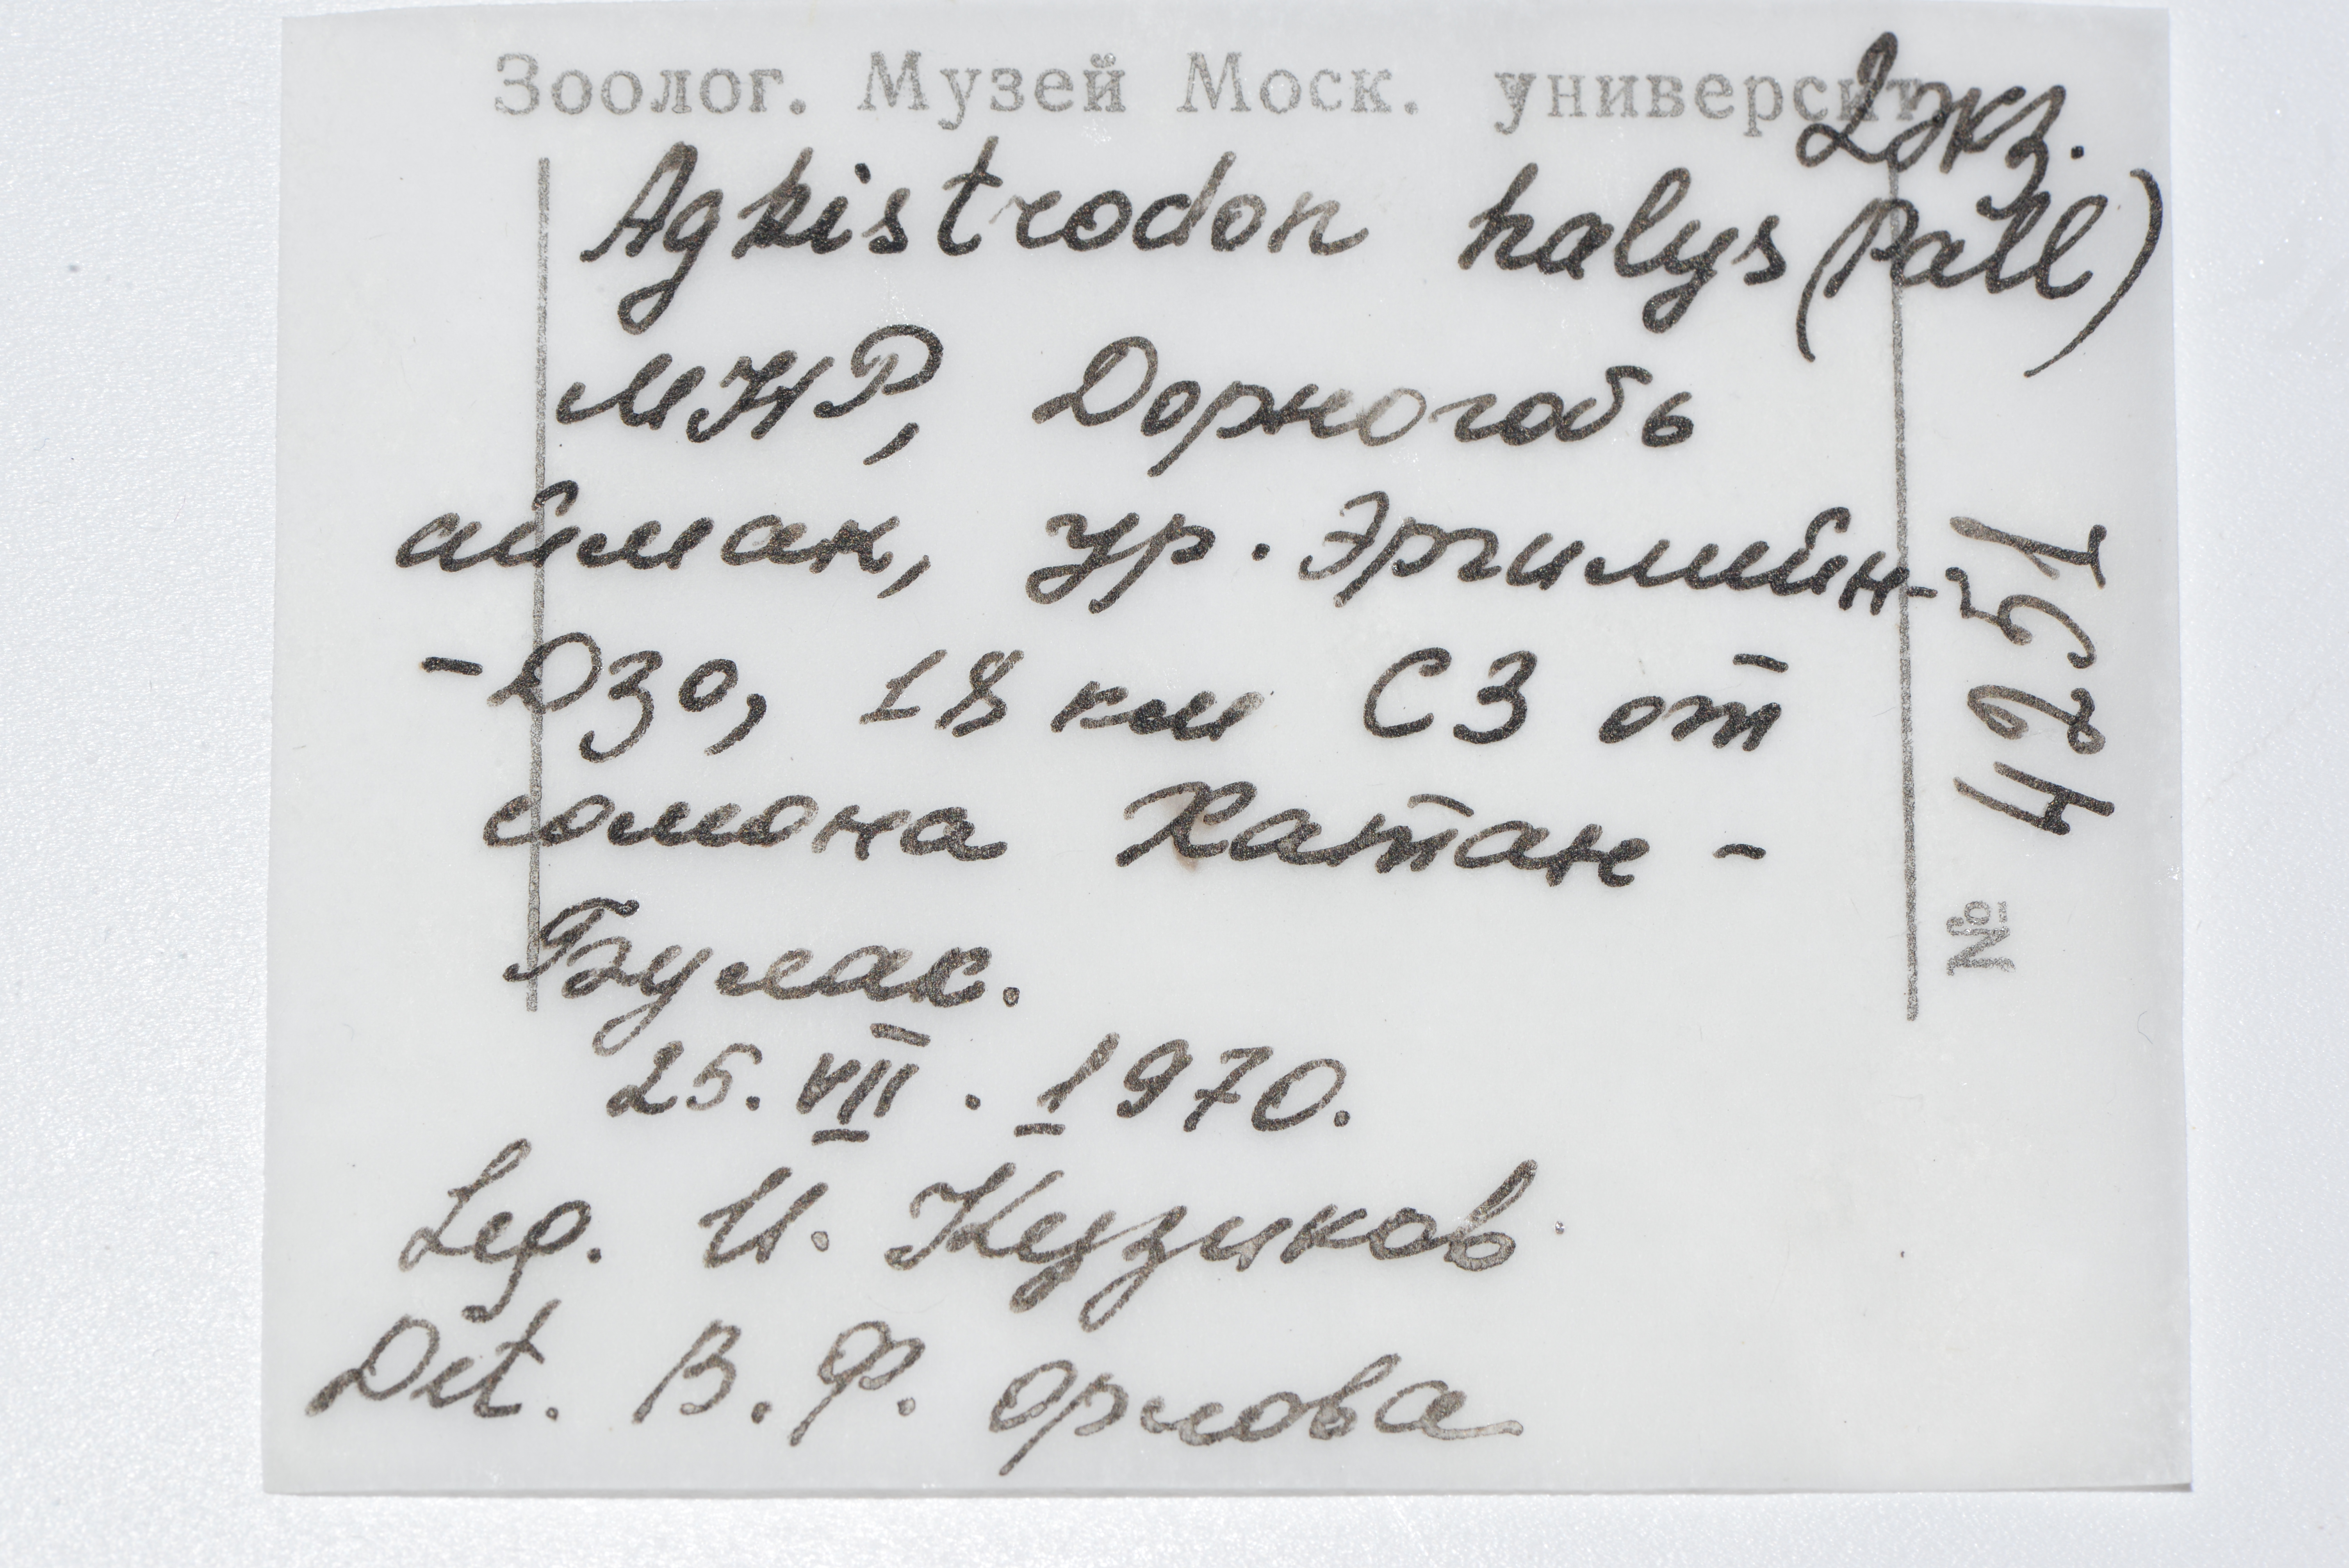 Зоолог. Музей Моск. университ.
2 экз.
Agkistrodon halys (Pall)
МНР, Дорногобь
аймак, ур. Эргилийн-
-Дзо, 18 км СЗ от
сомона Хатан-
Булак.
25. VII. 1970.
Leg. И. Кузиков
Det. В. Ф. Орлова
№ 4251